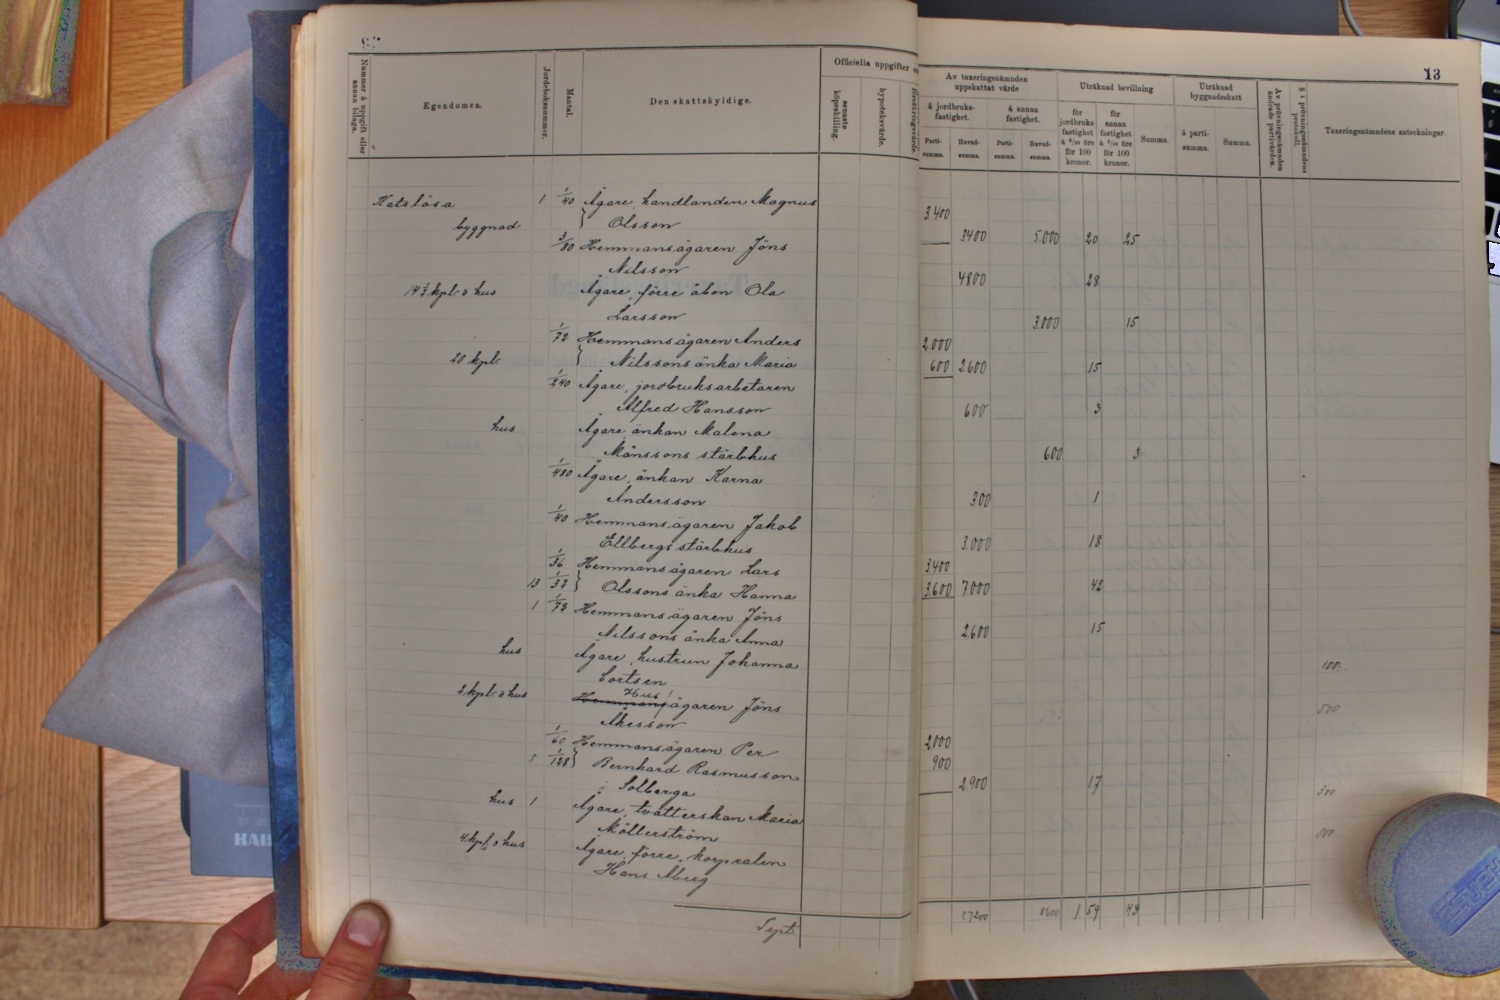 13
Nummer å uppgift eller annan bilaga.
Egendomen.
Jordeboksnummer.
Mantal.
Den skattskyldige.
Officiella uppgifter
senaste köpeskilling.
hypoteksvärde.
försäkringsvärde.
Av taxeringsnämnden uppskattat värde
å jordbruks-fastighet.
å annan fastighet.
Parti-summa.
Huvud-summa.
Parti-summa.
Huvud-summa.
Uträknad bevillning
för jordbruks fastighet à 6/10 öre för 100 kronor.
för annan fastighet à 5/10 öre för 100 kronor.
Summa.
Uträknad byggnadsskatt
à parti-summa.
Summa.
Av prövningsnämnden ändrade partivärden.
§ i prövningsnämndens protokoll.
Taxeringsnämndens anteckningar.
Katslösa 1 1/40 Ägare, handlanden Magnus 3.400
byggnad } Olsson 3400 5.000 20 25
3/80 Hemmansägaren Jöns
Nilsson 4800 28
14 1/2 kpl. o hus Ägare, förre åbon Ola
Larsson 3.000 15
1/72 Hemmansägaren Anders 2.000
20 kpl. } Nilssons änka Maria 600 2.600 15
1/240 Ägare, jordbruksarbetaren
Alfred Hansson 600 3
hus Ägare änkan Malena
Månssons stärbhus 600 3
1/480 Ägare, änkan Karna
Andersson 300 1
1/40 Hemmansägaren Jakob
Ellbergs stärbhus 3.000 18
1/36 Hemmansägaren Lars 3.400
13 1/32 } Olssons änka Hanna 3.600 7.000 42
1 1/72 Hemmansägaren Jöns
Nilssons änka Anna 2600 15
hus Ägare, hustrun Johanna 100.
Cortsen
2 kpl. o hus Hemmans Husägaren Jöns 500
Åkesson
1/60 Hemmansägaren Per 2.000
1/128 } Bernhard Rasmusson 900
Solberga 2.900 17 500
hus 1 Ägare, tvätterskan Maria
Möllerström
4 kpl. o hus Ägare, förre korpralen
Hans Åberg
27200 8600 1 59 43